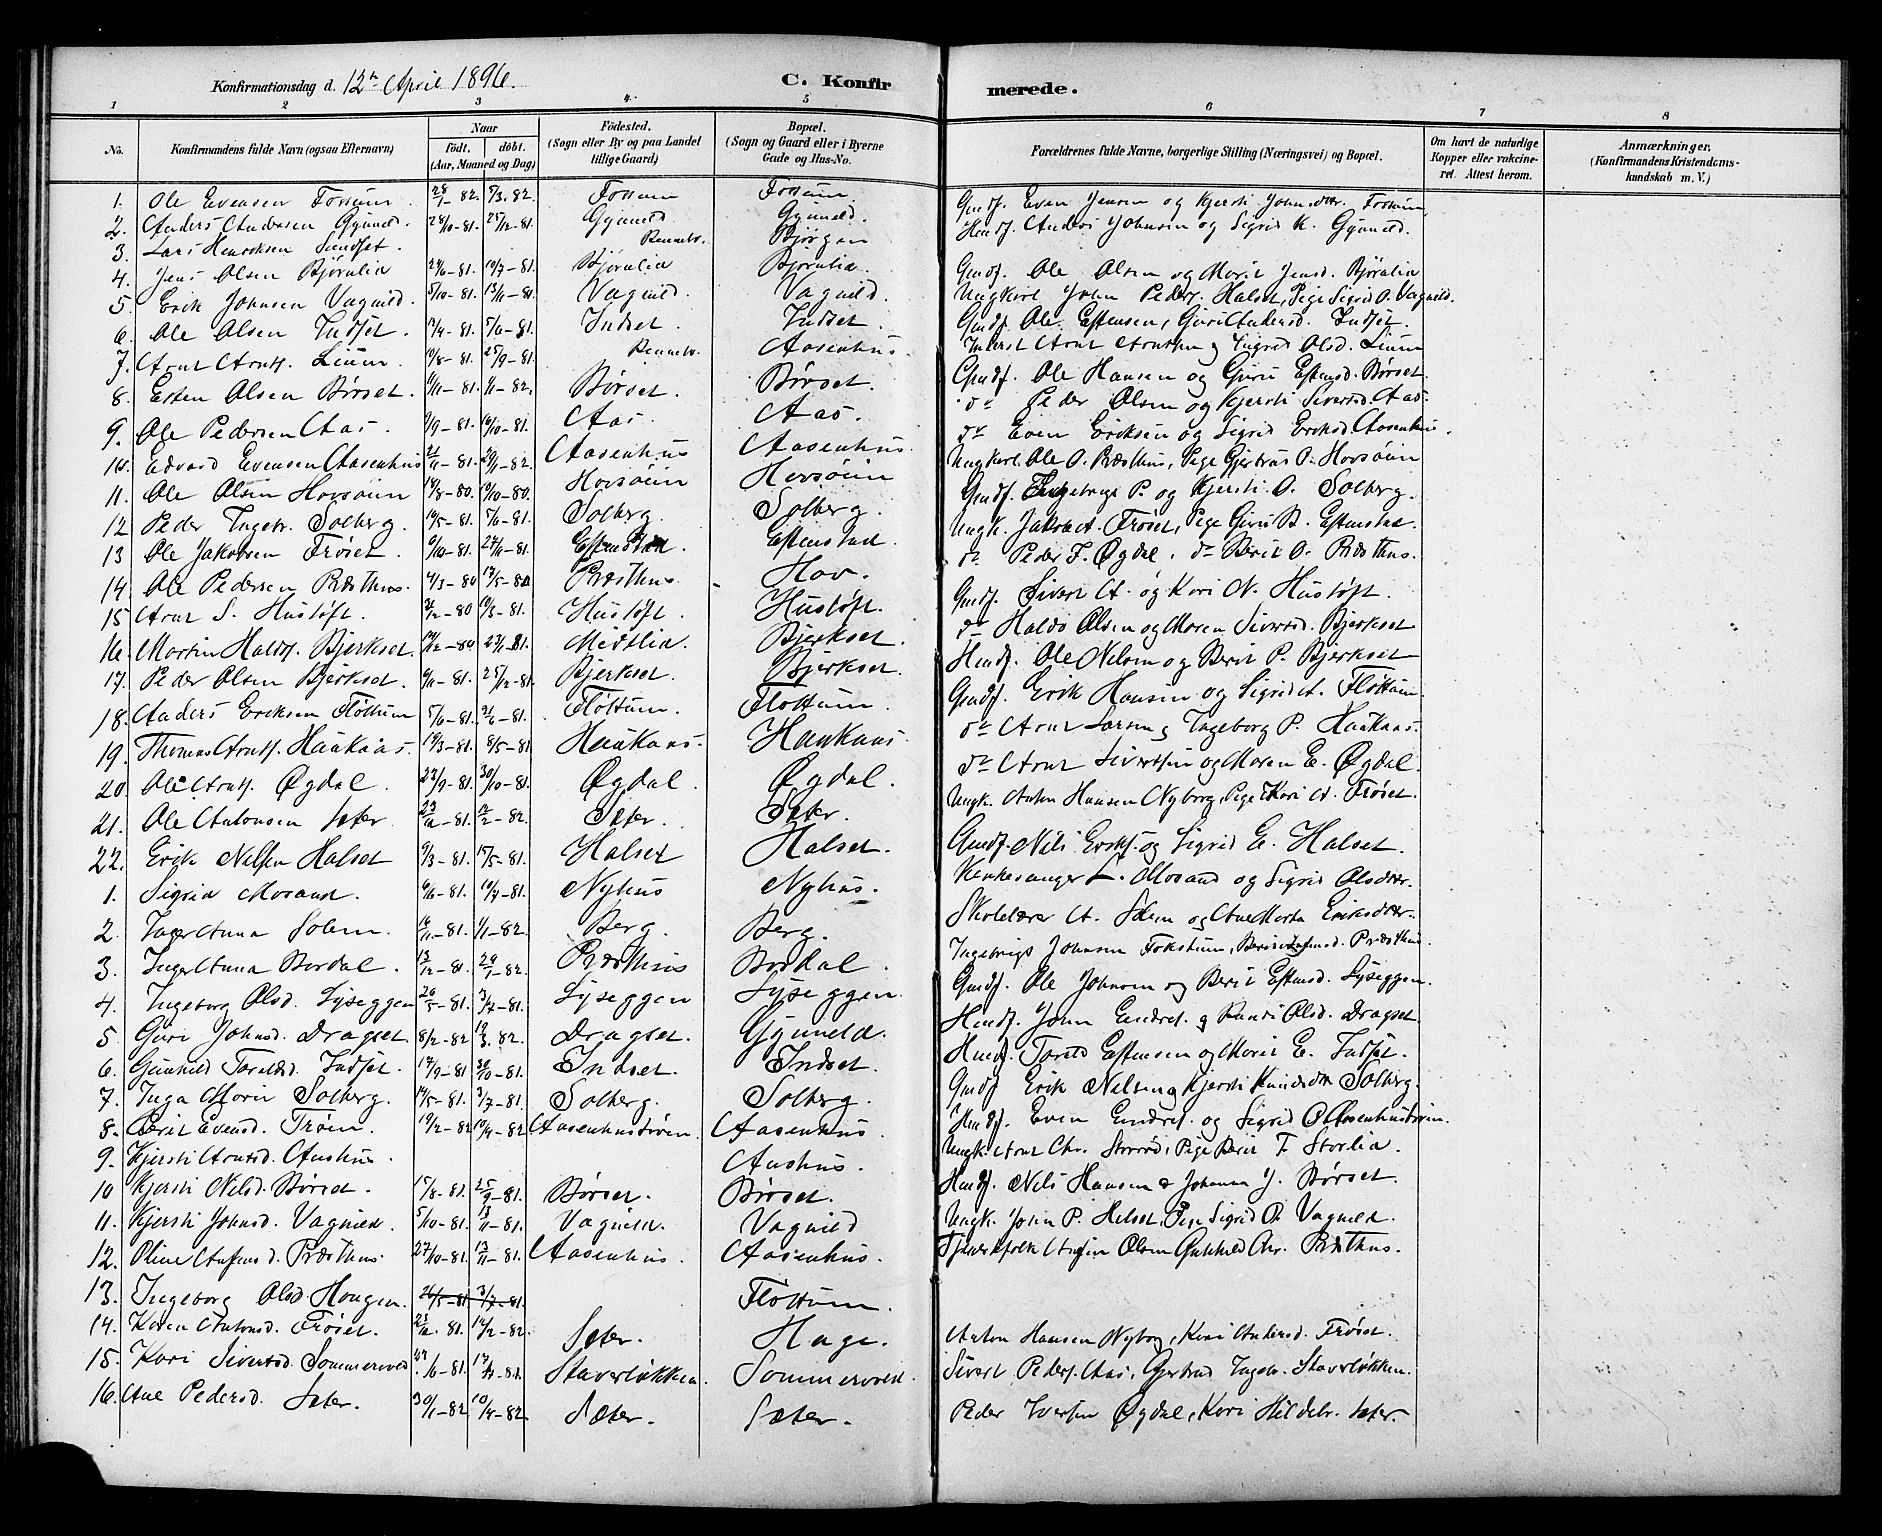 Konfirmationsdag d. 12te April 1896. C. Konfirmerede.
1 2 3 4 5 6 7 8
No. Konfirmandens fulde Navn (ogsaa Efternavn) Naar födt. döbt. (Aar, Maaned og Dag) Födested. (Sogn eller By og paa Landet tillige Gaard) Bopæl. (Sogn og Gaard eller i Byerne Gade og Hus-No. Forældrenes fulde Navne, borgerlige Stilling (Næringsvei) og Bopæl. Om havt de naturlige Kopper eller vakcineret. Attest herom. Anmærkninger. (Konfirmandens Kristendomskundskab m. V.)
1. Ole Evensen Fossum 28/1-82. 5/3.82. Fossum Fossum. Gmdf. Even Jensen og Kjersti Johnsdtr. Fossum
2. Anders Andersen Gynneld. 28/10-81. 25/12-81. Gynneld. Gynneld. Husdf. Anders Johnsen og Sigrid K. Gynneld.
3. Lars Henriksen Sundset. Rennebo. Bjørgen
4. Jens Olsen Bjørnlia 24/6-81. 10/7-81. Bjørnlia Bjørnlia. Gmdf. Ole Olsen og Marit Jensd. Bjørnlia
5. Erik Johnsen Vagnild. 5/10-81. 13/11-81. Vagnild. Vagnild. Ungkarl John Peders. Halset, Pige Sigrid O. Vagnild.
6. Ole Olsen Indset. 17/4-81. 5/6-81. Indset. Indset. Gmdf. Ole Estensen, Guri Andersd. Indset.
7. Arnt Arnts. Lium. 10/8-81. 25/9-81. Rennebo. Aasenhus. Inderst Arnt Arntsen og Ingrid Olsd. Lium
8. Esten Olsen Børset. 6/11-81. 1/1-82. Børset. Børset. Gmdf. Ole Hansen og Guru Estensd. Børset.
9. Ole Pedersen Aas. 9/9-81. 16/10-81. Aas Aas. do Peder Olsen og Kjersti Sivertsd. Aas.
10. Edvard Evensen Aasenhus 21/11-81. 29/1-82. Aasenhus Aasenhus. do Even Eriksen og Sigrid Eriksd. Aasenhus.
11. Ole Olsen Hovsøien 19/8-80. 10/10-80. Hovsøien Hovsøien Ungkarl. Ole O. Præsthus, Pige Gjertrud O. Hovsøien
12 Peder Ingebr. Solberg. 10/5-81. 5/6-81. Solberg. Solberg. Gmdf. Ingebrigt P. og Kjersti O. Solberg.
13 Ole Jakobsen Frøset. 9/10-81. 27/11-81. Estenstad. Estenstad Ungk. Jakob A. Frøset, Pige Guru B. Estenstad.
14. Ole Pedersen Præsthus. 4/3-80 17/5-80 Præsthus. Hov. do Peder F. Øgdal. do Berit O. Præsthus.
15 Arnt S. Husløft. 21/12-80 10/3-81. Husløft. Husløft. Gmdf. Sivert A. og Kari N. Husløft.
16. Martin Halds. Bjerkset. 14/12-80 23/1-81. Medtlia. Bjerkset. do Haldo Olsen og Maren Sivertsd. Bjerkset
17. Peder Olsen Bjerkset. 6/11-81. 25/12-81. Bjerkset. Bjerkset. Husdf. Ole Nilsen og Berit P. Bjerkset
18. Anders Eriksen Fløttum 5/6-81. 26/6-81. Fløttum. Fløttum. Gmdf. Erik Hansen og Sigrid A. Fløttum
19. Thomas Arnts. Haukaas. 19/3-81. 8/5-81. Haukaas. Haukaas. do Arnt Larsen og Ingeborg P. Haukaas.
20. Ole Arnts. Øgdal. 23/9-81. 30/10-81. Øgdal. Øgdal. do Arnt Sivertsen og Maren E. Øgdal.
21. Ole Antonsen Sæter. 23/12-81. 12/2-82. Sæter. Sæter. Ungk. Anton Hansen Nyborg, Pige Kari A. Frøset.
22. Erik Nilsen Halset 9/3-81. 15/5-81. Halset Halset. Gmdf. Nils Eriks. og Sigrid E. Halset.
1. Sigrid Mosand. 6/6-81. 10/7-81. Nyhus Nyhus. Kirkesanger L. Mosand og Sigrid Olsdtr.
2. Inger Anna Solem. 16/11-81. 1/1-82. Berg. Berg. Skolelærer A. Solem og Ane Marta Eriksdtr.
3. Inger Anna Bordal. 13/12-81. 29/1-82. Præsthus Bordal. Ingebrigt Johnsen Fokstum, Berit Præsthus.
4. Ingeborg Olsd. Lyseggen 26/5-81. 3/7-81. Lyseggen Lyseggen. Gmdf. Ole Johnsen og Berit Estensd. Lyseggen.
5. Guri Johnsd. Dragset 8/2-82 19/3.82. Dragset. Gynneld. Husdf. John Endres. og Randi Olsd. Dragset.
6. Gunhild Toralsd. Indset. 17/9-81 30/10-81. Indset. Indset. Husdf. Torald Estensen og Marit E. Indset.
7. Inga Marie Solberg. 14/5-81. 3/7-81. Solberg. Solberg. Gmdf Erik Nilsen og Kjersti Knudsdtr Solberg.
8. Berit Evensd. Trøen. 19/2-82 10/4-82 Aasenhustrøen. Aasenhus. Husdf. Even Endres. og Sigrid O. Aasenhustrøen.
9. Kjersti Arntsd. Aushus. Aushus. Ungk. Arnt Chr. Storrø, Pige Berit F. Storlia.
10 Kjersti Nilsd. Børset. 15/8-81. 25/9-81. Børset. Børset. Husdf. Nils Hansen & Johanna J. Børset.
11. Kjersti Johnsd. Vagnild. 5/10-81. 13/11-81. Vagnild. Vagnild Ungk. John P. Halset, Pige Sigrid O. Vagnild.
12. Oline Præsthus. 27/10-81. 13/11-81. Aasenhus. Aasenhus. Tjenerfolk Olsen Præsthus.
13. Ingeborg Olsd. Haugen. 26/5-81 3/7-81. Fløttum.
14. Karen Antonsd. Frøset. 23/12-81. 12/2-82. Sæter. Hage. Anton Hansen Nyborg, Kari Andersd. Frøset.
15. Kari Sivertsd. Sommervold 27/6-81. 17/7-81. Staverløkken. Sommervold. Sivert Peders. Aas, Gjertrud Ingebr. Staverløkken.
16. Ane Pedersd. Sæter. 30/1-82. 10/4-82. Sæter. Sæter. Peder Iversen Øgdal, Kari Hildebr. Sæter.